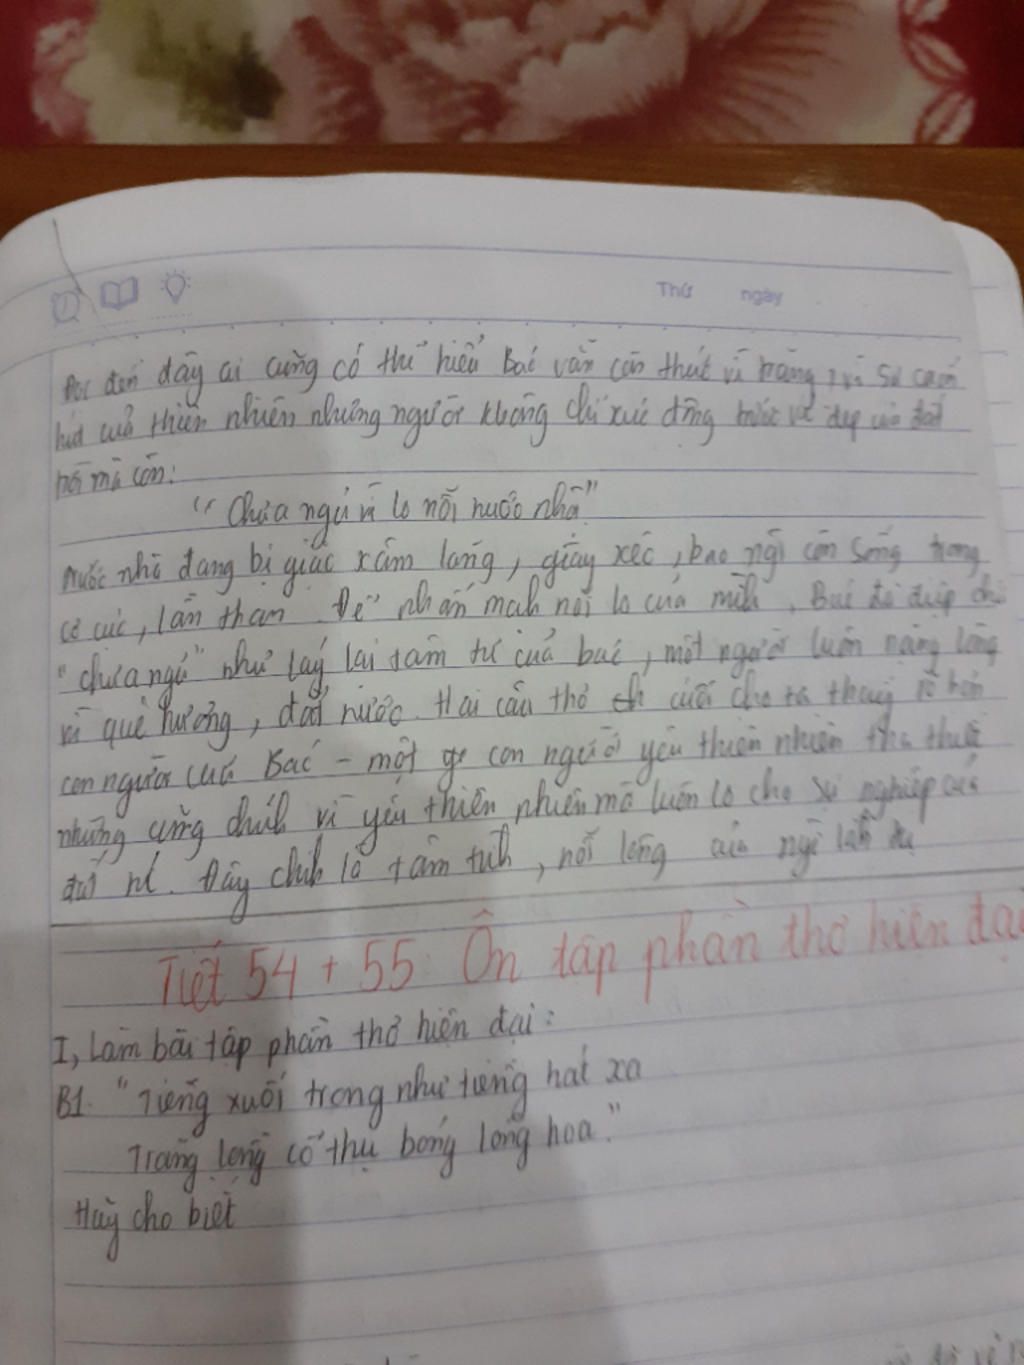 Thứ ngày
đọc đến đây ai cũng có thể hiểu Bác vẫn còn thức vì trăng, vì sự cuốn
hút của thiên nhiên nhưng người không chỉ xúc động trước vẻ đẹp của đất
trời mà còn:
"Chưa ngủ vì lo nỗi nước nhà"
nước nhà đang bị giặc xâm lăng, giày xéo, bao ng còn sống trong
cơ cực, lầm than. Để nhấn mạnh nỗi lo của mình, Bác đã điệp chữ
"chưa ngủ" như láy lại tâm tư của bác, một người luôn nặng lòng
vì quê hương, đất nước. Hai câu thơ cuối cho ta thấy rõ hơn
con người của Bác - một con người yêu thiên nhiên tha thiết
nhưng cũng chính vì yêu thiên nhiên mà luôn lo cho sự nghiệp của
đất nc. Đây chính là tâm tình, nỗi lòng của ng
Tiết 54 + 55: Ôn tập phần thơ hiện đại
I, Làm bài tập phần thơ hiện đại:
B1. "Tiếng xuối trong như tiếng hát xa
Trăng lồng cổ thụ bóng lồng hoa."
Hãy cho biết